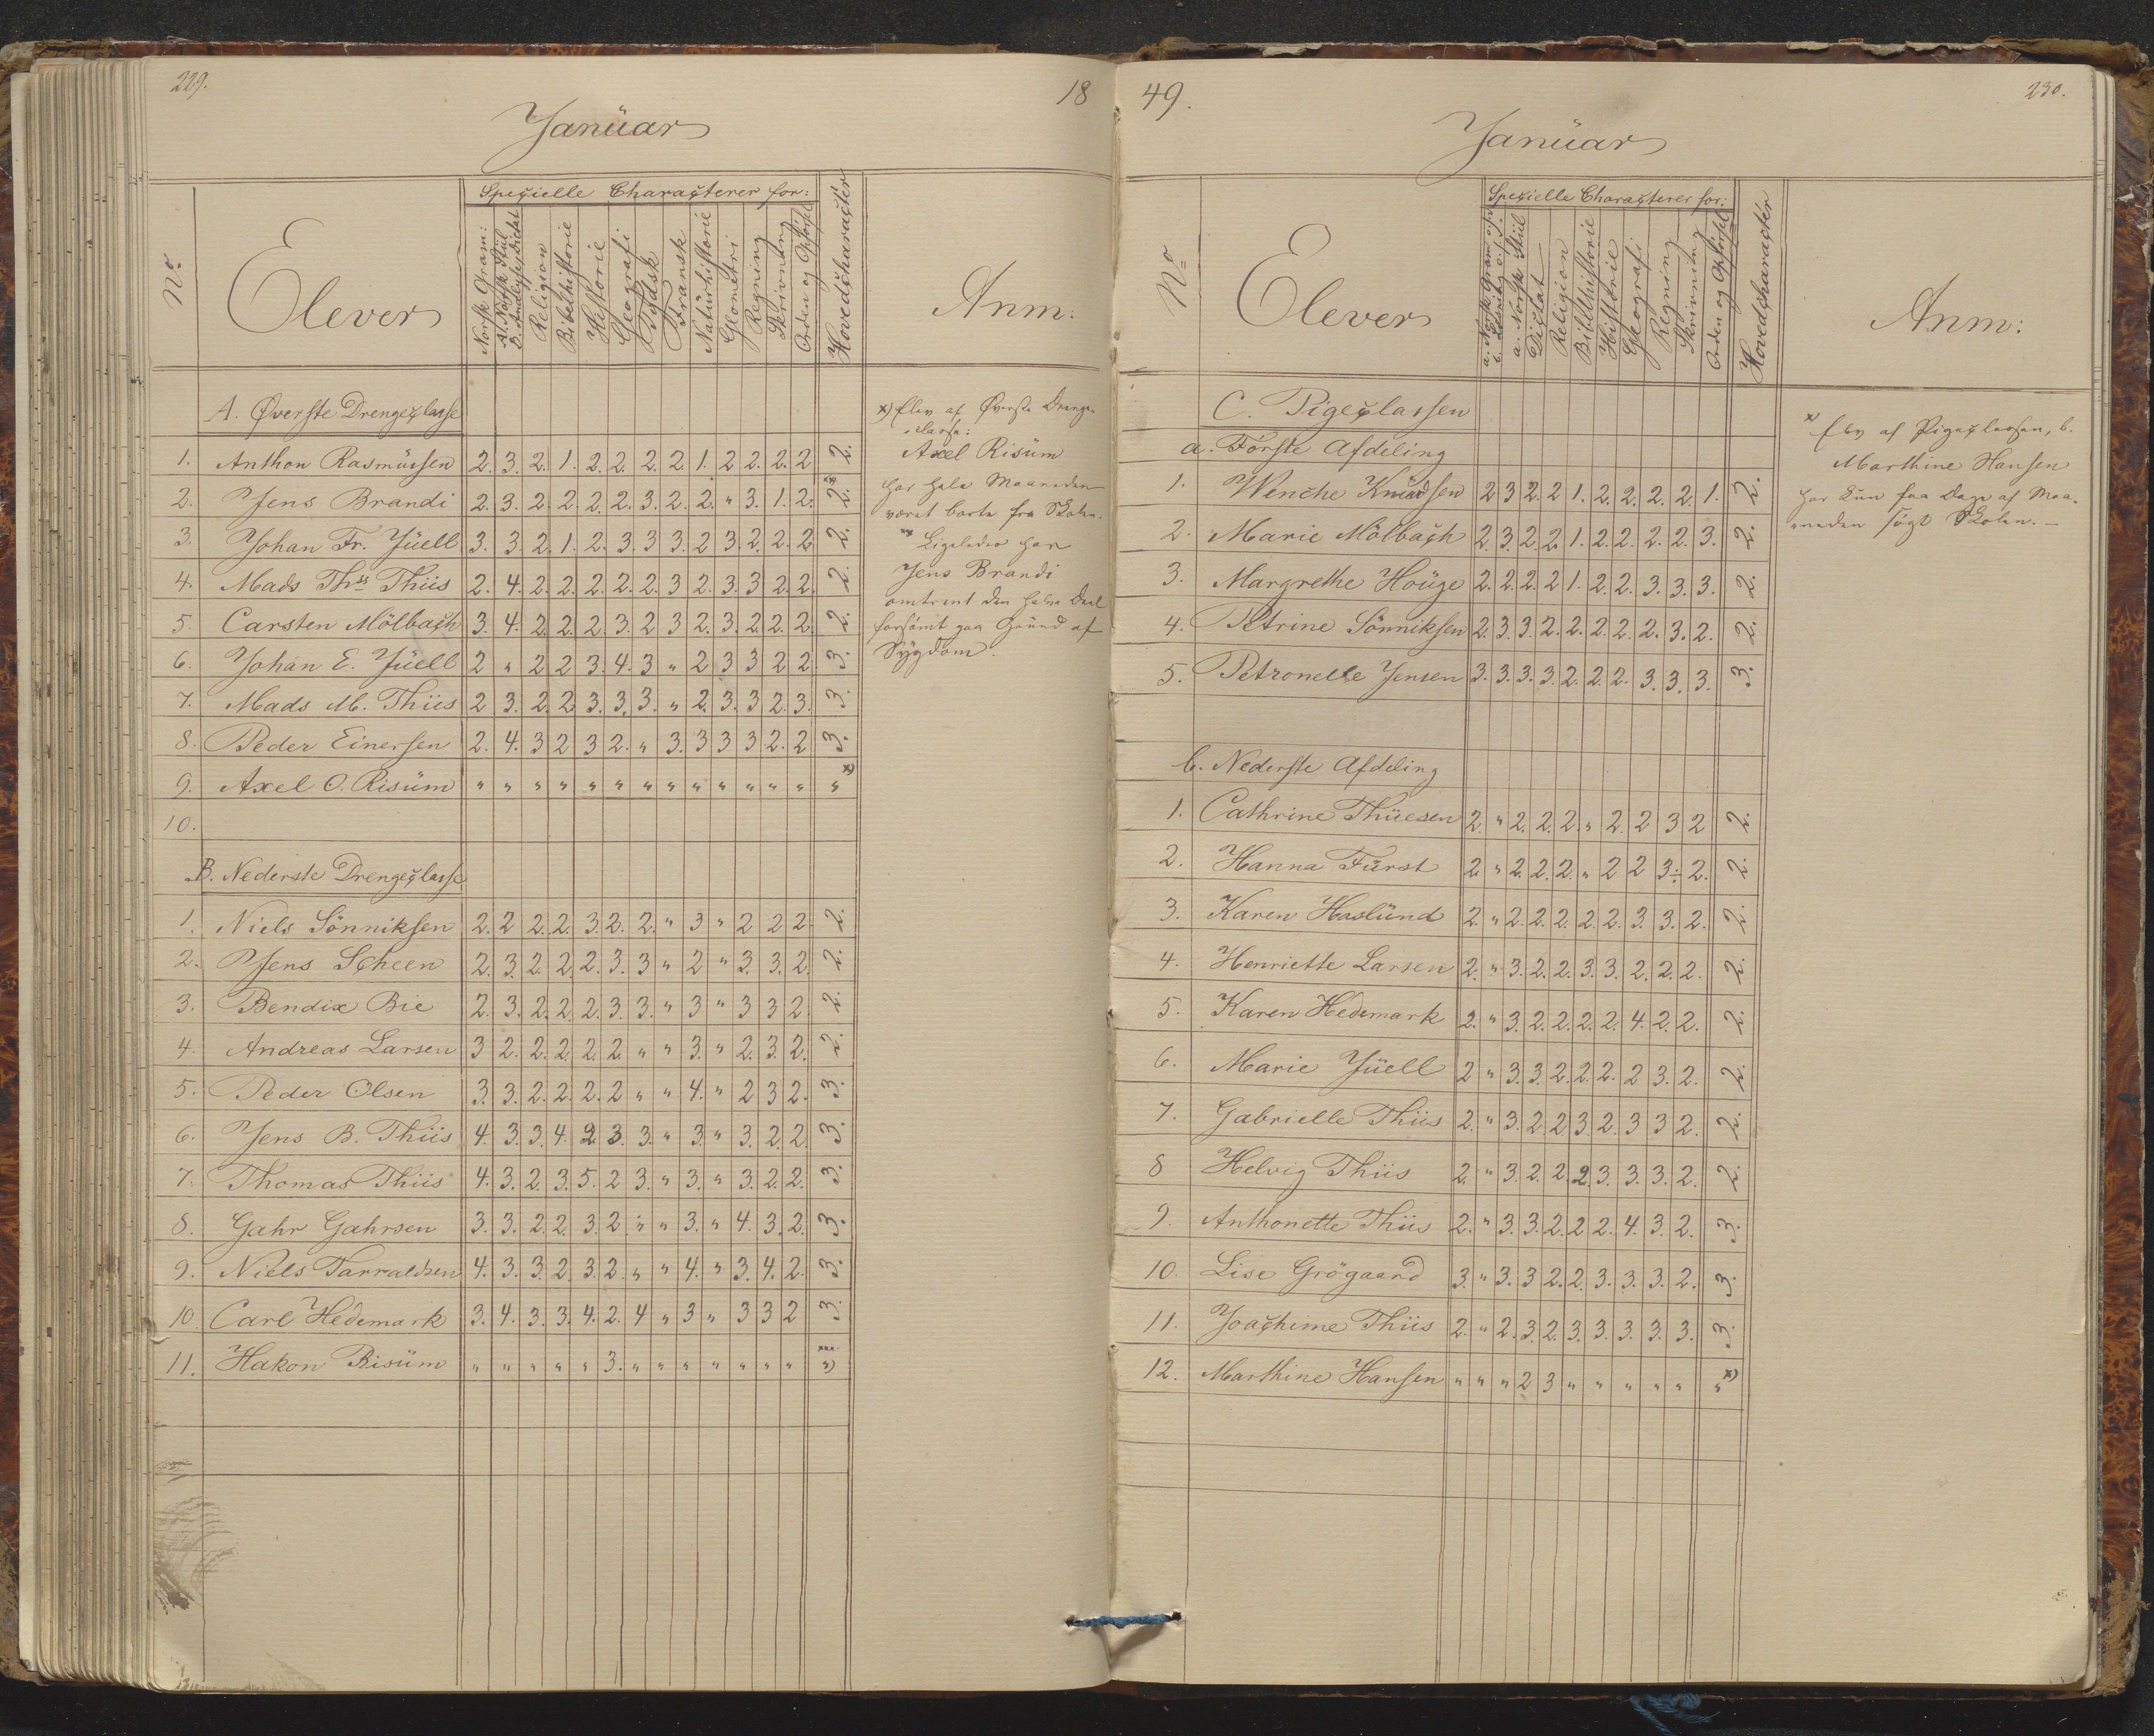 229.
18
Januar
No
Elever
Specielle Characterer for:
Norsk Gram:
A. Norsk Stiil
B. Analyse, Dictat
Religion
Bibelhistorie
Historie
Geografi
Tydsk
Fransk
Naturhistorie
Geometri
Regning
Skrivning
Orden og Opførsel
Hovedcharacter
Anm:
A. Øverste Drengeclasse
1. Anthon Rasmussen 2. 3. 2. 1. 2. 2. 2. 2. 1. 2 2. 2. 2 2.
2. Jens Brandi 2. 3. 2. 2. 2. 2. 3. 2. 2. " 3. 1. 2. 2. **
3. Johan Fr. Juell 3. 3. 2. 1. 2. 3. 3 3. 2 3. 2. 2. 2. 2.
4. Mads Ths Thiis 2. 4. 2. 2. 2. 2. 2. 3 2. 3. 3 2. 2. 2.
5. Carsten Mölbach 3. 4. 2. 2. 2. 3. 2 3 2. 3. 2. 2. 2. 2.
6. Johan E. Juell 2 " 2 2 3. 4. 3 " 2 3 3 2 2. 3.
7. Mads M. Thiis 2 3. 2. 2 3. 3. 3. " 2. 3. 3 2. 3. 3.
8. Peder Einersen 2. 4. 3 2 3 2. " 3. 3 3 3 2. 2 3.
9. Axel O. Risum " " " " " " " " " " " " " " x)
10.
B. Nederste Drengeclasse
1. Niels Sönniksen 2. 2 2. 2. 3. 2. 2. " 3 " 2 2 2. 2.
2. Jens Scheen 2. 3. 2. 2. 2. 3. 3 " 2 " 3. 3. 2. 2.
3. Bendix Bie 2. 3. 2. 2. 2. 3. 3. " 3 " 3 3 2. 2.
4. Andreas Larsen 3 2. 2. 2. 2. 2. " " 3. " 2. 3. 2. 2.
5. Peder Olsen 3. 3. 2. 2. 2. 2 " " 4. " 2 3 2. 3.
6. Jens B. Thiis 4. 3. 3. 4. 2. 3. 3. " 3. " 3. 2. 2. 3.
7. Thomas Thiis 4. 3. 2. 3. 5. 2 3. " 3. " 3. 2. 2. 3.
8. Gahr Gahrsen 3. 3. 2. 2. 3. 2. " " 3. " 4. 3. 2. 3.
9. Niels Tarraldsen 4. 3. 3. 2. 3. 2. " " 4. " 3. 4. 2. 3.
10. Carl Hedemark 3. 4. 3. 3. 4. 2. 4 " 3 " 3 3 2 3.
11. Hakon Risum " " " " " 3. " " " " " " " ") xxx
x) Elev af Øverste Drenge-
classe:
Axel Risum
har hele Maaneden
været borte fra Skolen.
** Ligeledes har
Jens Brandi
omtrent den halve Deel
forsømt paa Grund af
Sygdom.
49.
230.
Januar
No
Elever
Specielle Characterer for:
a. Norsk Gram
b. Læsning
a. Norsk Stiil
Dictat
Religion
Bibelhistorie
Historie
Geografi
Regning
Skrivning
Orden og Opførsel
Hovedcharacter
Anm:
C. Pigeclassen
a. Første Afdeling
1. Wenche Knudsen 2 3 2. 2 1. 2. 2. 2. 2. 1. 2.
2. Marie Mölbach 2. 3. 2. 2. 1. 2. 2. 2. 2. 3. 2.
3. Margrethe Houge 2. 2. 2. 2 1. 2. 2. 3. 3. 3. 2.
4. Petrine Sönniksen 2. 3. 3. 2. 2. 2. 2. 2. 3. 2. 2.
5. Petronelle Jensen 3. 3. 3. 3. 2. 2. 2. 3. 3. 3. 3.
b. Nederste Afdeling
1. Cathrine Thuesen 2. " 2. 2. 2. " 2. 2 3 2 2.
2. Hanna Furst 2. " 2. 2. 2. " 2 2 3÷ 2. 2.
3. Karen Haslund 2. " 2. 2. 2. 2. 2. 3. 3. 2. 2.
4. Henriette Larsen 2. " 3. 2. 2. 3. 3. 2. 2. 2. 2.
5. Karen Hedemark 2. " 3. 2. 2. 2. 2. 4. 2. 2. 2.
6. Marie Juell 2 " 3. 3. 2. 2. 2. 2 3. 2. 2.
7. Gabrielle Thiis 2. " 3. 2. 2 3. 2. 3 3 2. 2.
8 Helvig Thiis 2. " 3. 2. 2. 2. 3. 3. 3. 2. 2.
9. Anthonette Thiis 2. " 3. 3. 2. 2 2. 4. 3. 2. 3.
10. Lise Grögaard 3. " 3. 3 2. 2. 3. 3. 3. 2. 3.
11. Joachime Thiis 2. " 2. 3. 2. 3. 3. 3. 3. 3. 3.
12. Marthine Hansen " " " 2 3 " " " " " " x)
x) Elev af Pigeclassen, b.
Marthine Hansen
har kun faa Dage af Maa-
neden søgt Skolen. —